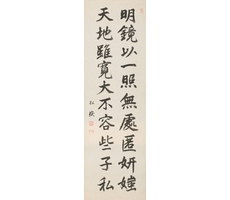 明鏡以一照無處匿妍媸
天地雖寬大不容些子私